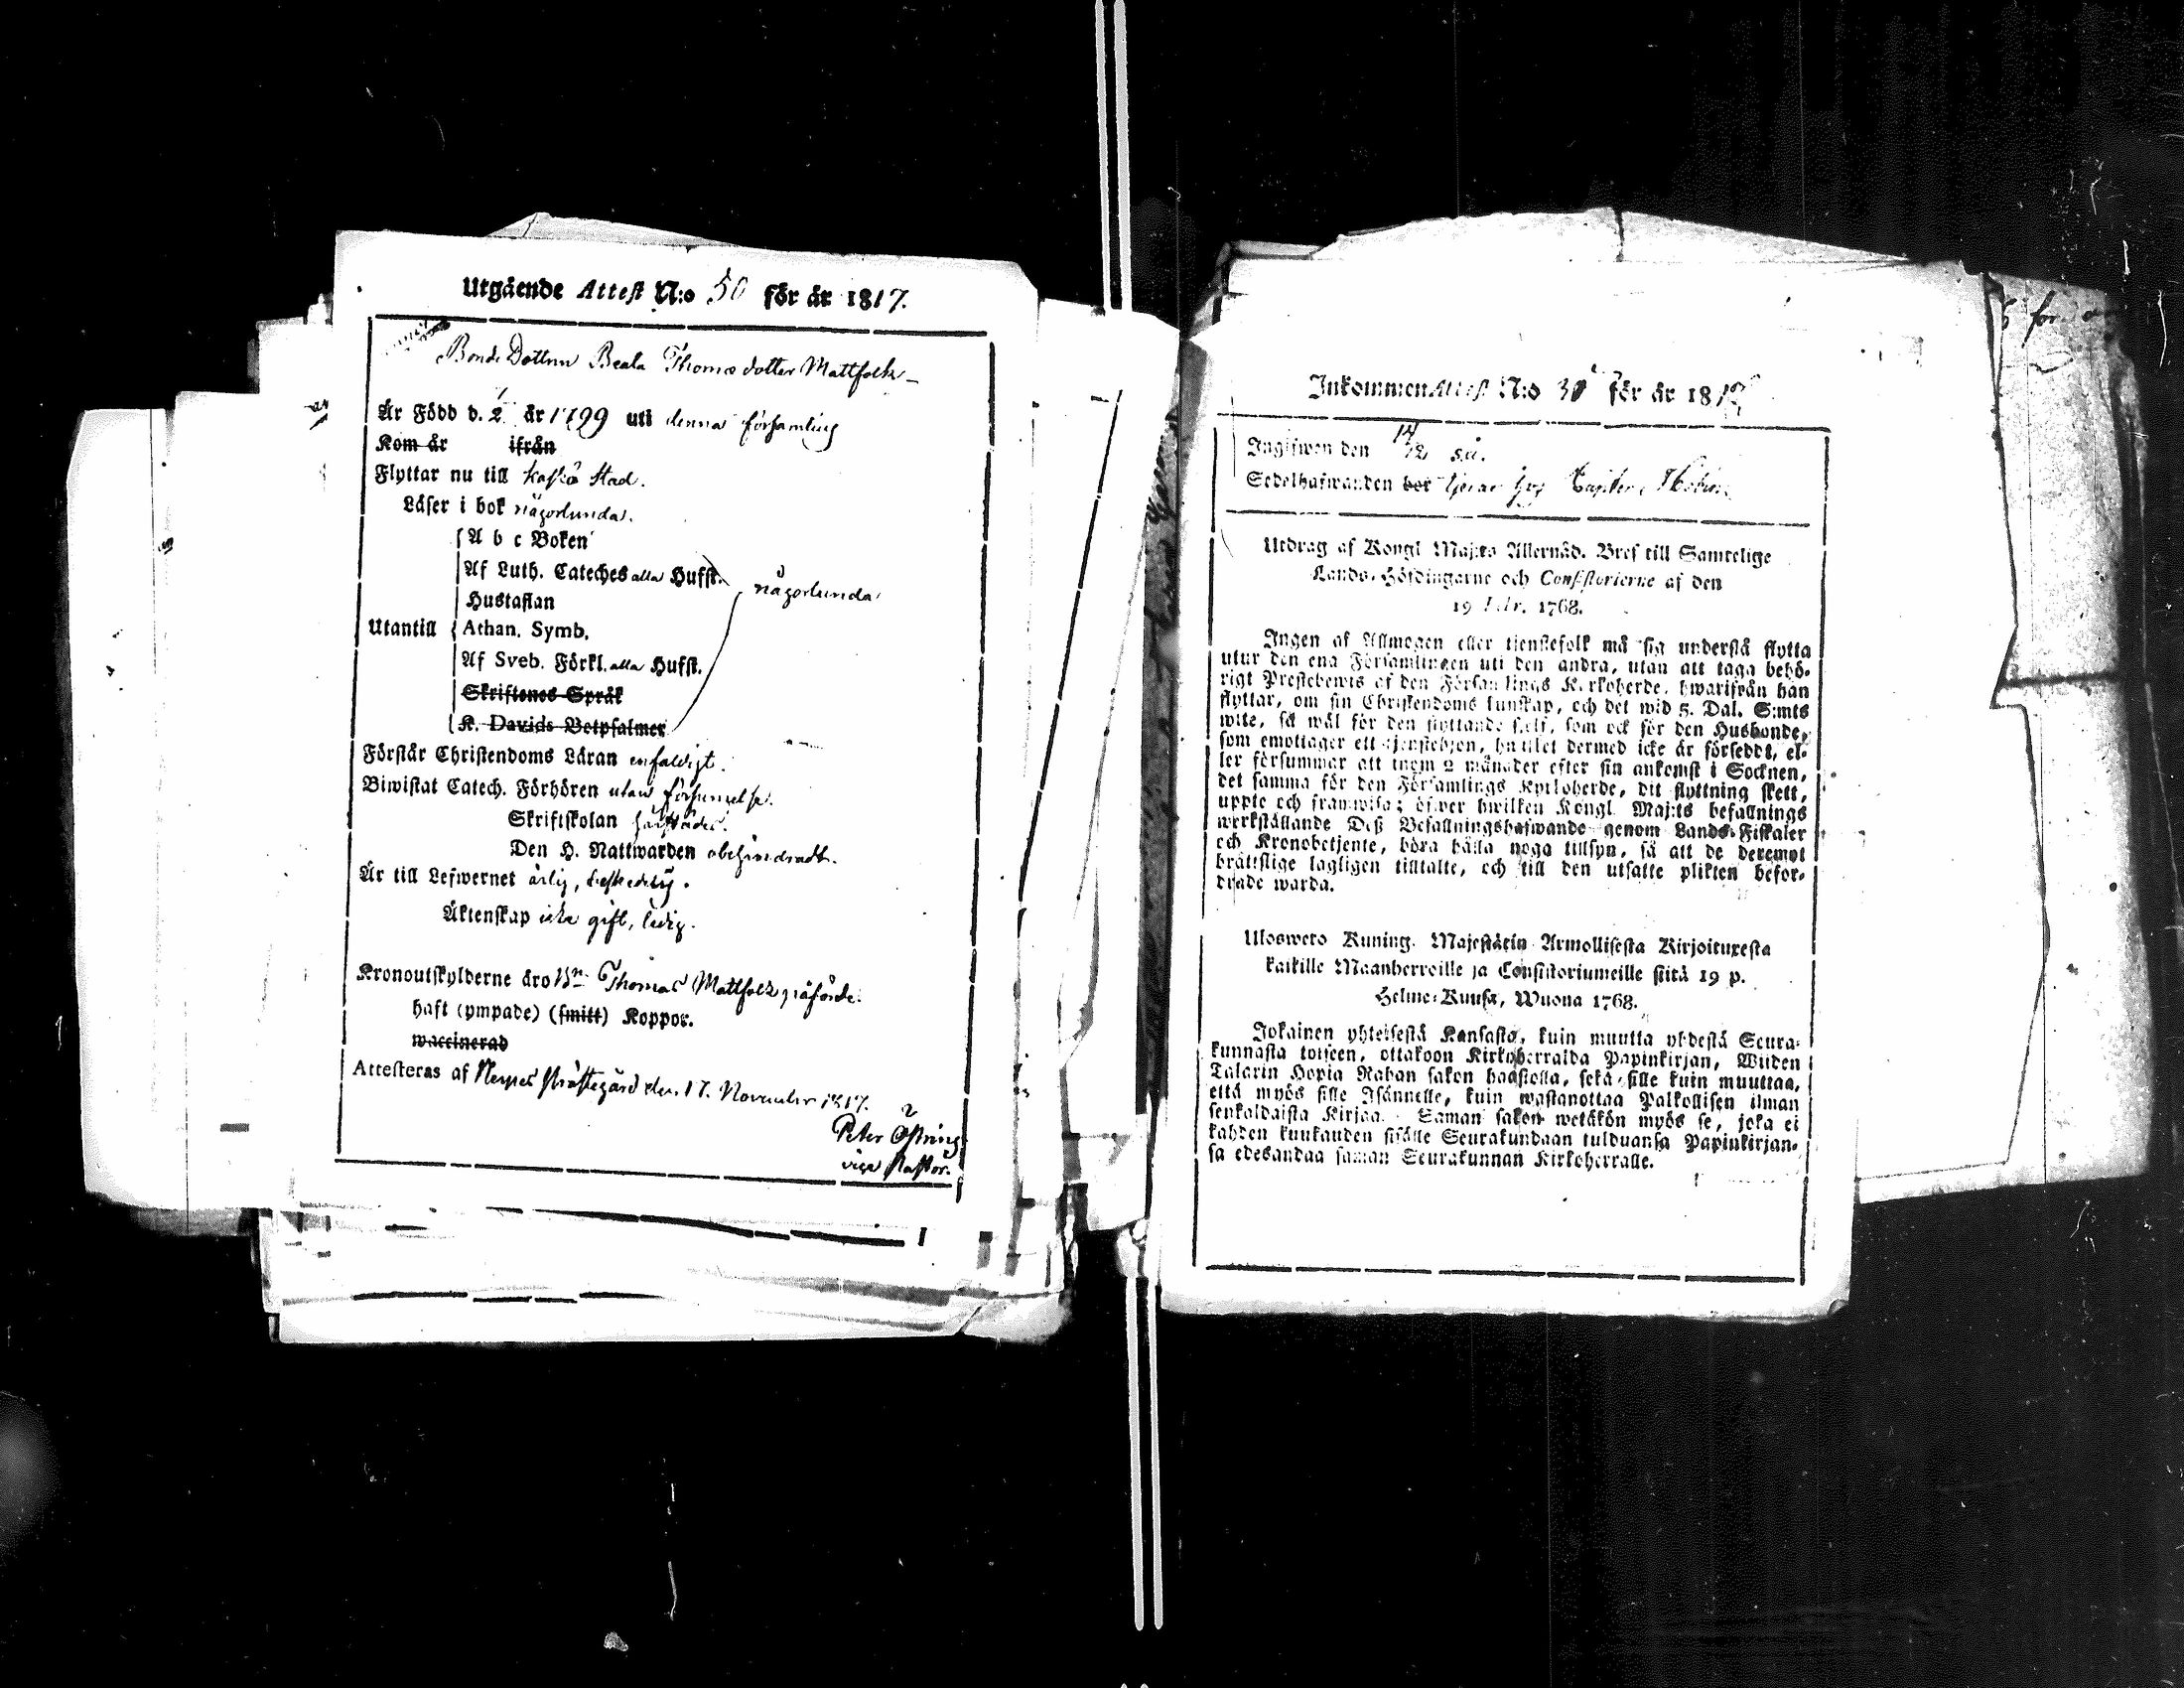 Utgående Attest N:o 50 för år 1817.
Bonde Dottren Beata Thomædotter Mattfolk
Är Född d. 2 år 1799 uti denna församling
Kom år ifrån
Flyttar nu till Kaskö Stad.
Läser i bok någorlunda.
A b c Boken
Af Luth. Cateches alla Hufst.
någorlunda
Hustaflan
Utantill Athan. Symb.
Af Sveb. Förkl. alla Hufst.
Skriftenes Språk
K. Davids Botpsalmer
Förstår Christendoms Läran enfaldigt.
Biwistat Catech. Förhören utan försummelse.
Skriftskolan härstädes.
Den H. Nattwarden obehindradt.
Är till Lefwernet ärlig, beskedelig.
Äktenskap icke gift, ledig.
Kronoutskylderne äro Bn Thomas Mattfolk påförde.
haft (ympade) (smitt) Koppor.
waccinerad
Attesteras af Nerpes Prästegård den 17. November 1817.
Peter Östring
vice Pastor.
för
Inkommen Attest N:o för år 181
Ingifwen den 14/12 s.å.
Sedelhafwanden bor tjenar hos
Utdrag af Kongl Maj:ts Allernåd. Bref till Samtelige
Lands-Höfdingarne och Consistorierne af den
19 Febr. 1768.
Ingen af Allmogen eller tjenstefolk må sig understå flytta
utur den ena Församlingen uti den andra, utan att taga behö-
rigt Prestebewis af den Församlings Kyrkoherde, hwarifrån han
flyttar, om sin Christendoms kunskap, och det wid 5. Dal. S:mts
wite, så wäl för den flyttande sjelf, som ock för den Husbonde,
som emottager ett tjenstehjon, hwilket dermed icke är försedt, el-
ler försummar att inom 2 månader efter sin ankomst i Socknen,
det samma för den Församlings Kyrkoherde, dit flyttning skett,
uppte och framwisa; öfwer hwilken Kongl Maj:ts befallnings
werkställande Deß Befallningshafwande genom Lands-Fiskaler
och Kronobetjente, böra hålla noga tillsyn, så att de deremot
bråttslige lagligen tilltalte, och till den utsatte plikten befor-
drade warda.
Uloswero Kuning. Majestätin Armollisesta Kirjoituxesta
kaikille Maanherroille ja Consistoriumeille siitä 19 p.
Helme-Kuusa, Wuona 1768.
Jokainen yhteisestä Kansasta, kuin muutta yhdestä Seura-
kunnasta toiseen, ottakoon Kirkoherralda Papinkirjan, Wiiden
Talarin Hopia Rahan sakon haastolla, sekä sille kuin muuttaa,
että myös sille Isännelle, kuin wastanottaa Palkollisen ilman
senkaldaista Kirjaa. Saman sakon wetäkön myös se, joka ei
kahden kuukauden sisälle Seurakundaan tulduansa Papinkirjan-
sa edesandaa saman Seurakunnan Kirkoherralle.